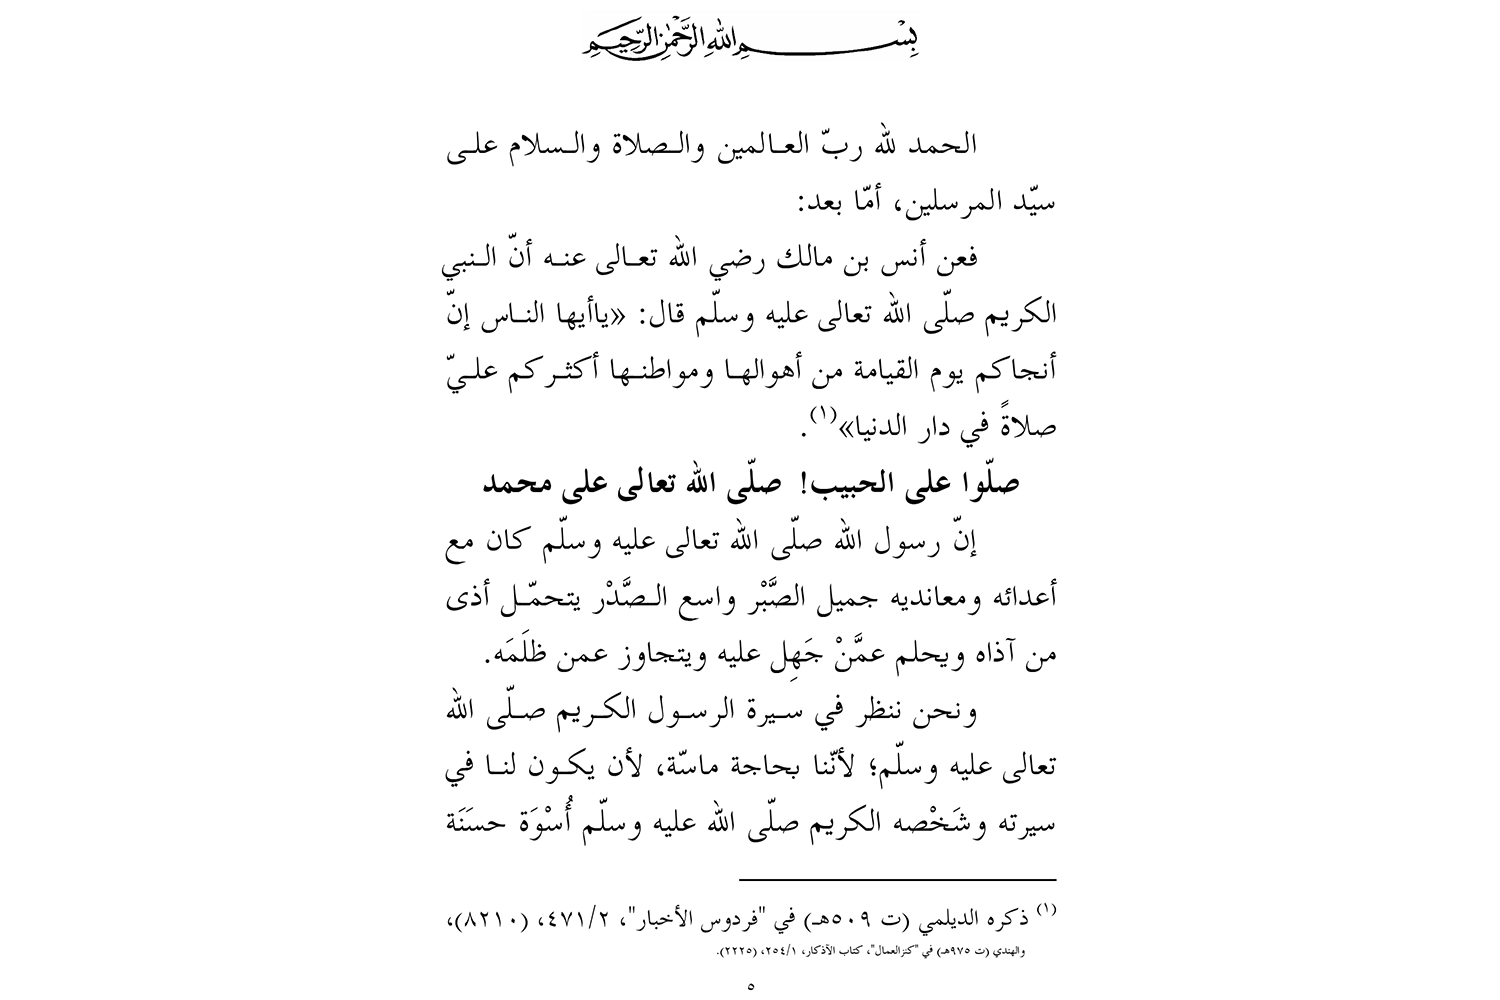 بِسْمِ اللهِ الرَّحْمٰنِ الرَّحِيْمِ
الحمد لله ربّ العالمين والصلاة والسلام على
سيّد المرسلين، أمّا بعد:
فعن أنس بن مالك رضي الله تعالى عنه أنّ النبي
الكريم صلّى الله تعالى عليه وسلّم قال: «ياأيها الناس إنّ
أنجاكم يوم القيامة من أهوالها ومواطنها أكثركم عليّ
صلاةً في دار الدنيا»(١).
صلّوا على الحبيب! صلّى الله تعالى على محمد
إنّ رسول الله صلّى الله تعالى عليه وسلّم كان مع
أعدائه ومعانديه جميل الصَّبْر واسع الصَّدْر يتحمّل أذى
من آذاه ويحلم عمَّنْ جَهِل عليه ويتجاوز عمن ظلَمَه.
ونحن ننظر في سيرة الرسول الكريم صلّى الله
تعالى عليه وسلّم؛ لأنّنا بحاجة ماسّة، لأن يكون لنا في
سيرته وشَخْصه الكريم صلّى الله عليه وسلّم أُسْوَة حسَنَة
(١) ذكره الديلمي (ت ٥٠٩هـ) في "فردوس الأخبار"، ٤٧١/٢، (٨٢١٠)،
والهندي (ت ٩٧٥هـ) في "كنزالعمال"، كتاب الآذكار، ٢٥٤/١، (٢٢٢٥).
٥